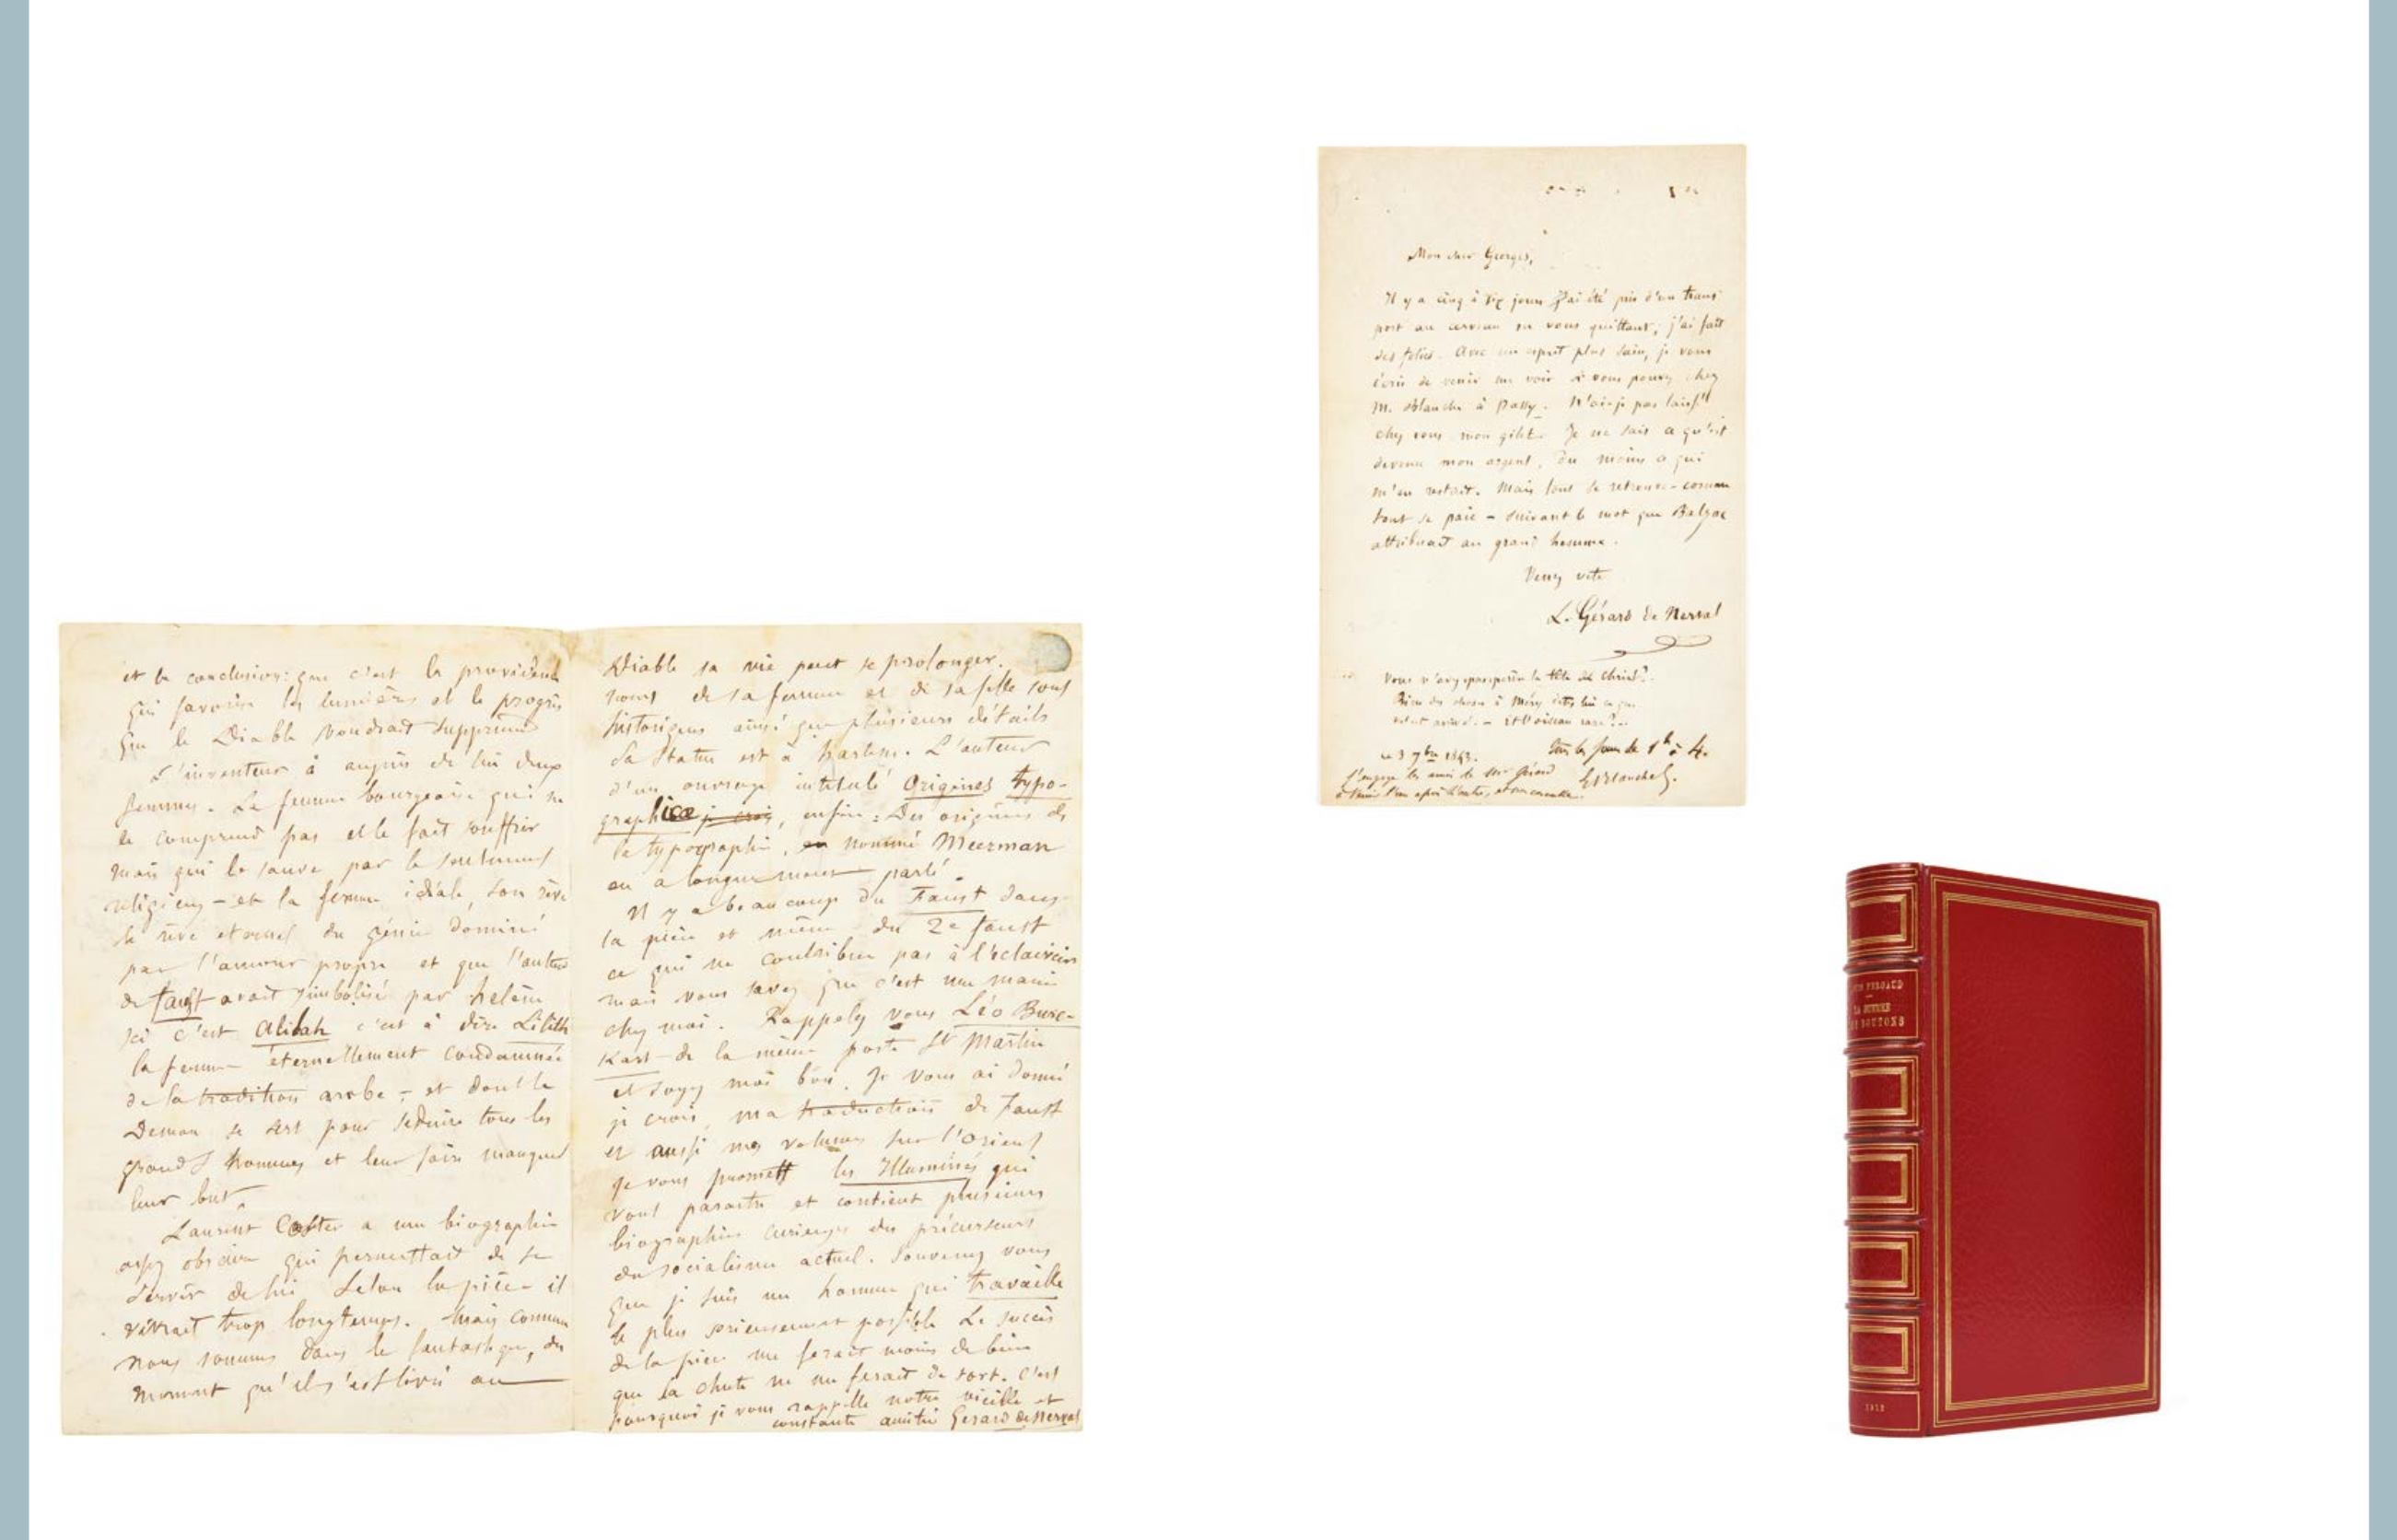 et la conclusion: que c'est la providence
qui favorise les lumières et le progrès
que le Diable voudrait supprimer
L'inventeur a auprès de lui deux
femmes. La femme bourgeoise qui ne
le comprend pas et le fait souffrir
mais qui le sauve par le sentiment
religieux - et la femme idéale, son rêve
le rêve éternel du génie dominé
par l'amour propre et que l'auteur
de faust avait simbolisé par helène
Ici c'est Alilah c'est à dire Lilith
la femme éternellement condamnée
de la tradition arabe - et dont le
Demon se sert pour séduire tous les
grands hommes et leur faire manquer
leur but.
Laurent Coster a une biographie
assez obscure qui permettait de se
servir de lui. Selon la pièce il
vivrait trop longtemps. Mais comme
nous sommes dans le fantastique, du
moment qu'il s'est livré au
Diable sa vie peut se prolonger.
noms de sa femme et de sa fille sont
historiques ainsi que plusieurs détails
Sa statue est à harlem. L'auteur
d'un ouvrage intitulé Origines typo-
graphicæ je crois, enfin: Des origines de
la typographie, nommé Meerman
en a longuement parlé.
Il y a beaucoup du Faust dans
la pièce et même du 2e faust
ce qui ne contribue pas à l'éclaircir
mais vous savez que c'est une manie
chez moi. Rappelez vous Léo Burc-
kart de la même porte St Martin
et soyez moi bon. Je vous ai donné
je crois, ma traduction de Faust
et aussi mes volumes sur l'orient
je vous promets les Illuminés qui
vont paraitre et contient plusieurs
biographies curieuses des précurseurs
du socialisme actuel. Souvenez vous
que je suis un homme qui travaille
le plus sérieusement possible. Le succès
de la pièce me ferait moins de bien
que sa chute ne me ferait de tort. C'est
pourquoi je vous rappelle notre vieille et
constante amitié Gerard de Nerval
Mon cher Georges,
Il y a cinq à six jours j'ai été pris d'un trans
port au cerveau en vous quittant; j'ai fait
des folies. Avec un esprit plus sain, je vous
écris de venir me voir si vous pouvez chez
M. Blanche à Passy. N'ai-je pas laissé
chez vous mon gilet. Je ne sais ce qu'est
devenu mon argent, du moins ce qui
m'en restait. Mais tout se retrouve - comme
tout se paie - suivant le mot que Balzac
attribuait au grand homme.
Venez vite
L. Gérard de Nerval
Vous n'avez pas perdu la tête de Christ?
Bien des choses à Méry dites lui ce qui
m'est arrivé. - Et l'oiseau rare?..
ce 3 7bre 1853.
Tous les jours de 1h à 4.
J'engage les amis de Mr Gérard
à venir l'un après l'autre, et non ensemble.
E. Blanche
LOUIS PERGAUD
LA GUERRE
DES BOUTONS
1912